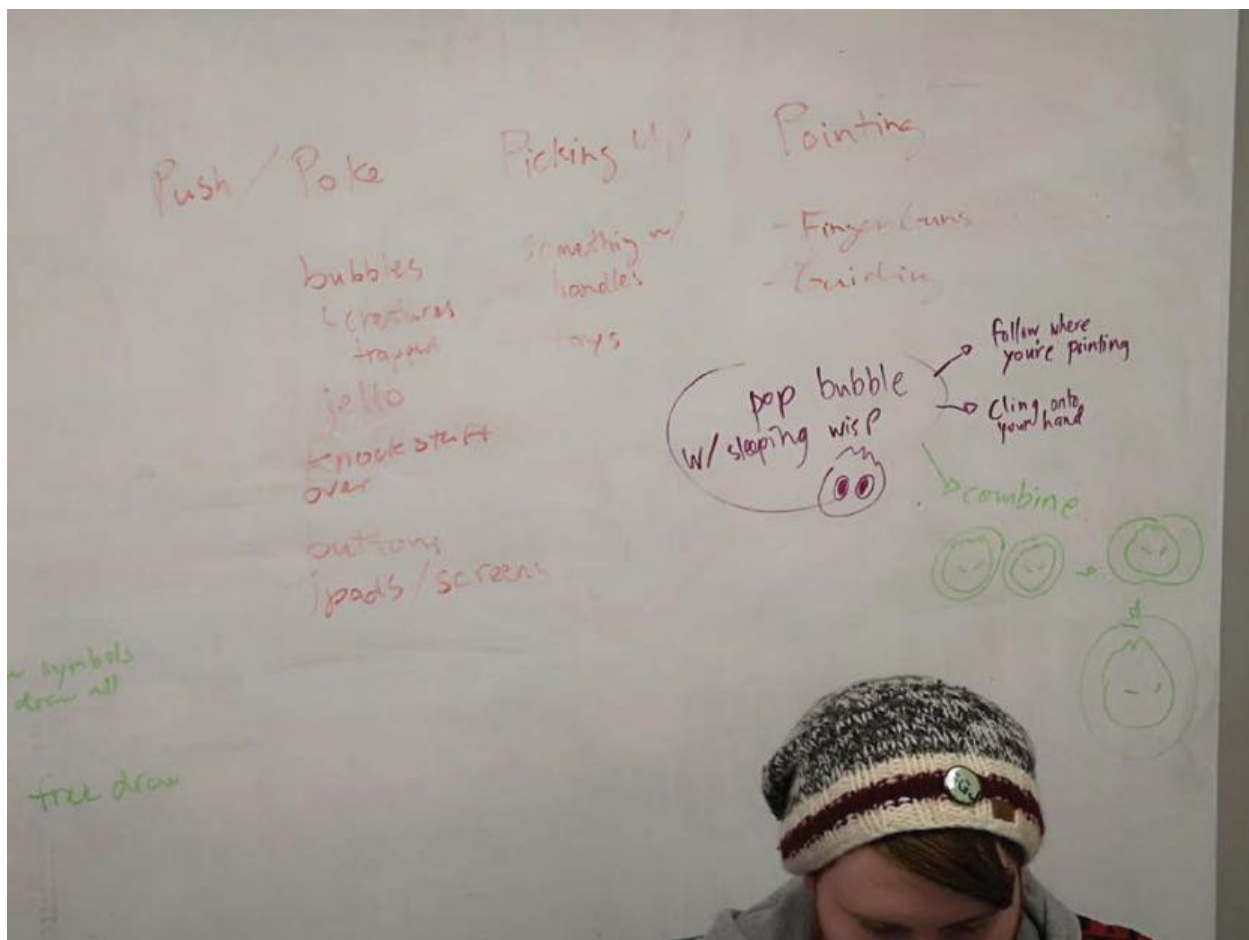 Push / Poke
bubbles
creatures
trapped
jello
knock stuff
over
buttons
ipads / screens
Picking Up
something w/
handles
Pointing
- Finger Guns
- Guiding
pop bubble
w/ sleeping wisp
follow where
you're pointing
cling onto
your hand
combine
symbols
draw all
free draw